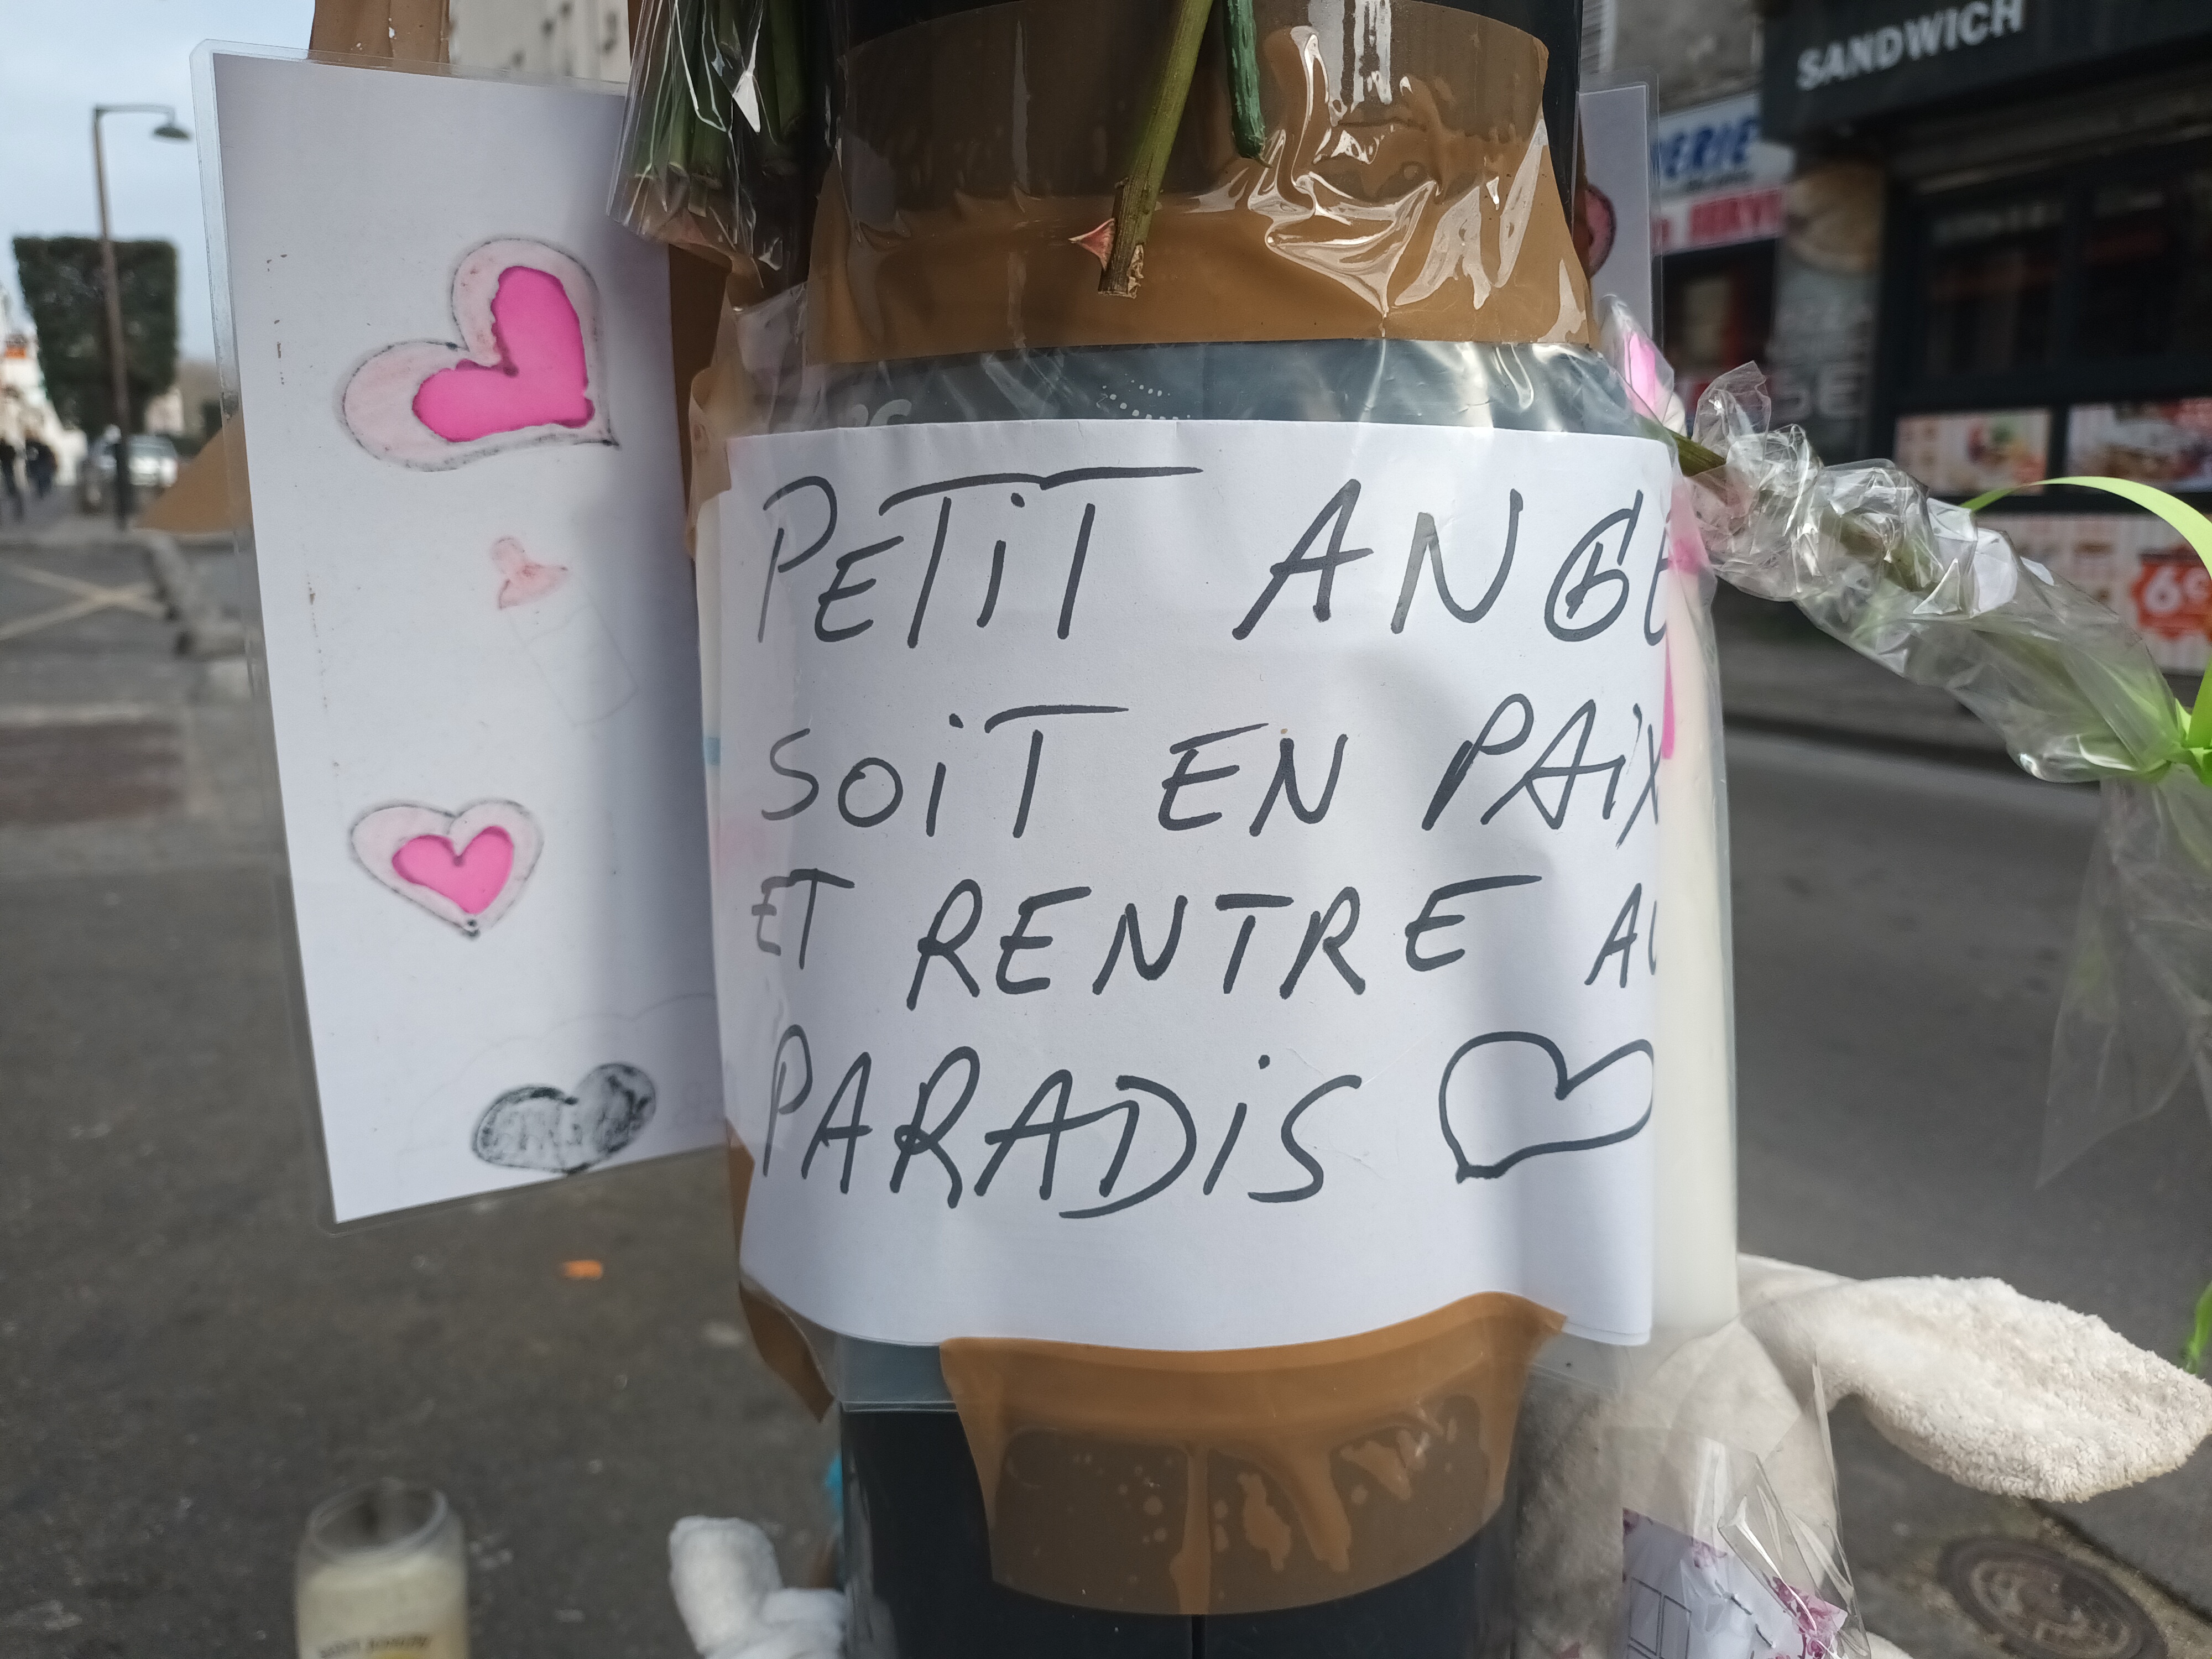 SANDWICH
PETIT ANGE
SOIT EN PAIX
ET RENTRE AU
PARADIS